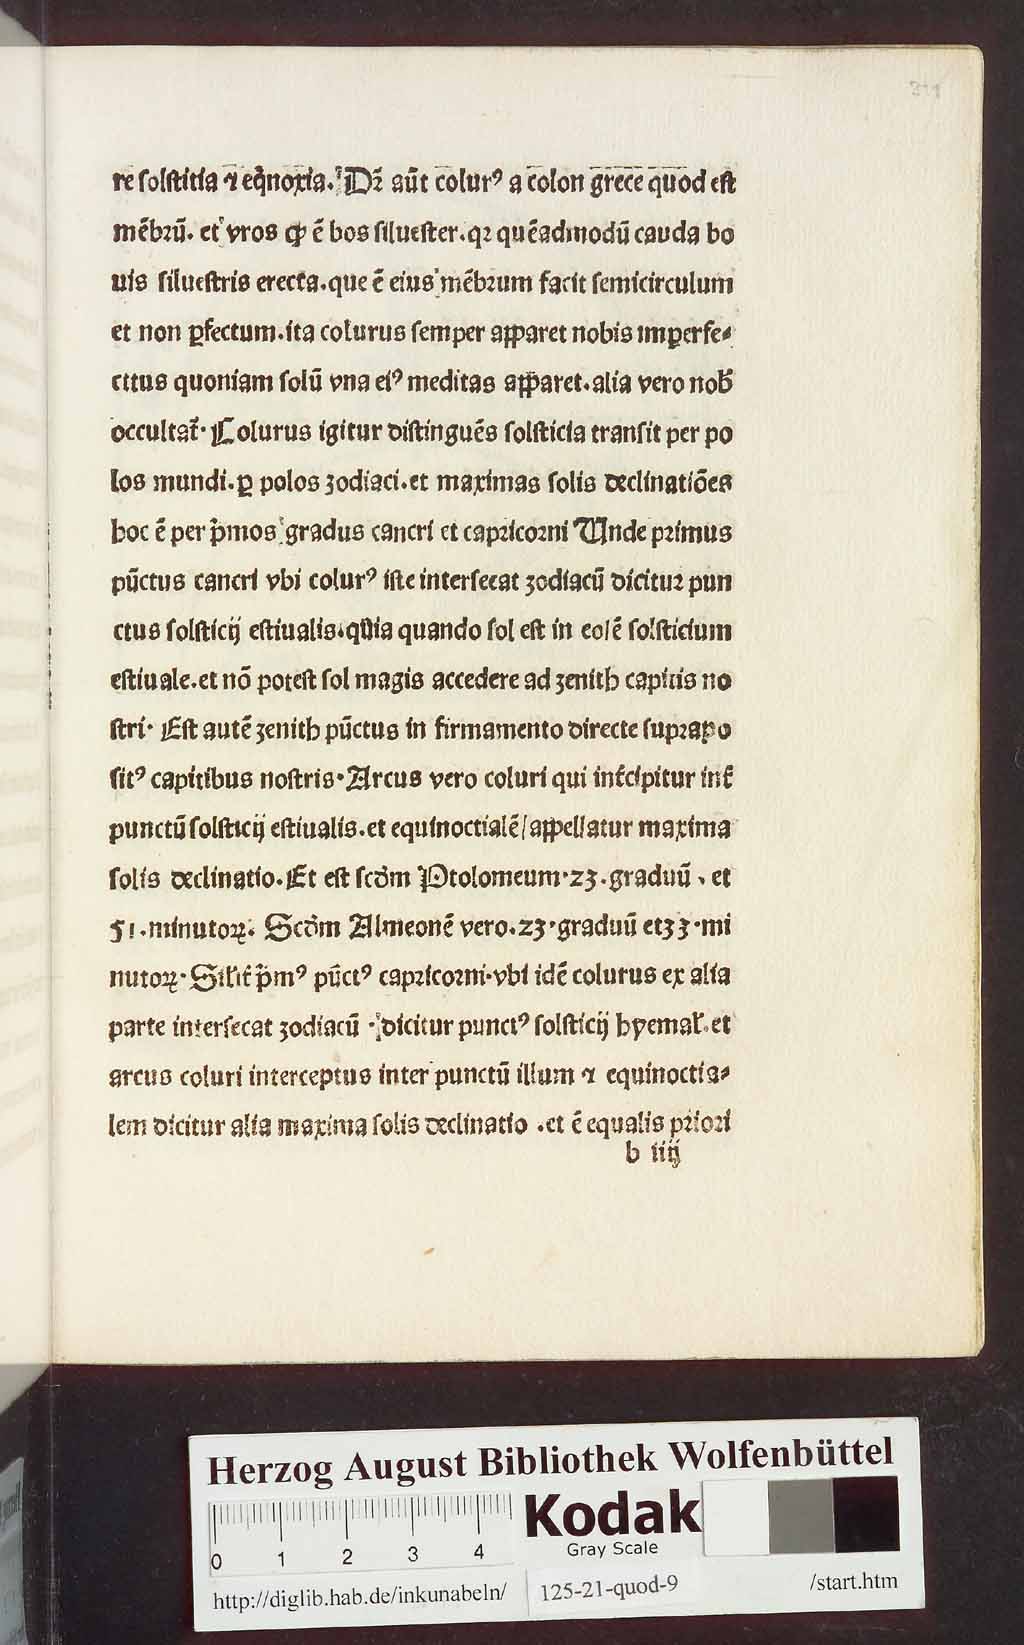 311
re ſolſtitia ⁊ eq̇noxia. Dꝛ̄ aūt coluꝛꝰ a colon grece quod eſt
mēbꝛū. et vros ꝙ ē bos ſilueſter. qꝛ quēadmodū cauda bo
uis ſilueſtris erecta. que ē eius mēbꝛum facit ſemicirculum
et non ꝑfectum. ita colurus ſemper apparet nobis imperfe⸗
cttus quoniam ſolū vna eiꝰ meditas apparet. alia vero nob̄
occultat᷑. Colurus igitur diſtinguēs ſolſticia tranſit per po
los mundi. ꝑ polos zodiaci. et maximas ſolis declinatiōes
hoc ē per p̄mos gradus cancri et capꝛicoꝛni Unde pꝛimus
pūctus cancri vbi colurꝰ iſte interſecat zodiacū dicituꝛ pun
ctus ſolſticij eſtiualis. quia quando ſol eſt in eoiē ſolſticium
eſtiuale. et nō poteſt ſol magis accedere ad zenith capitis no
ſtri. Eſt autē zenith pūctus in firmamento directe ſupꝛapo
ſitꝰ capitibus noſtris. Arcus vero coluri qui int̄cipitur int̄
punctū ſolſticij eſtiualis. et equinoctialē/ appellatur maxima
ſolis declinatio. Et eſt ſcd̄m Ptolomeum. 23. graduū. et
51. minutoꝝ. Scd̄m Almeonē vero. 23. graduū et 33. mi
nutoꝝ. Silit̄ p̄mꝰ pūctꝰ capꝛicoꝛni. vbi idē colurus ex alia
parte interſecat zodiacū. dicitur punctꝰ ſolſticij hyemaƚ. et
arcus coluri interceptus inter punctū illum ⁊ equinoctia⸗
lem dicitur alia maxima ſolis declinatio. et ē equalis pꝛioꝛi
b iiij
Herzog August Bibliothek Wolfenbüttel
Kodak
Gray Scale
0 1 2 3 4
http://diglib.hab.de/inkunabeln/ 125-21-quod-9 /start.htm